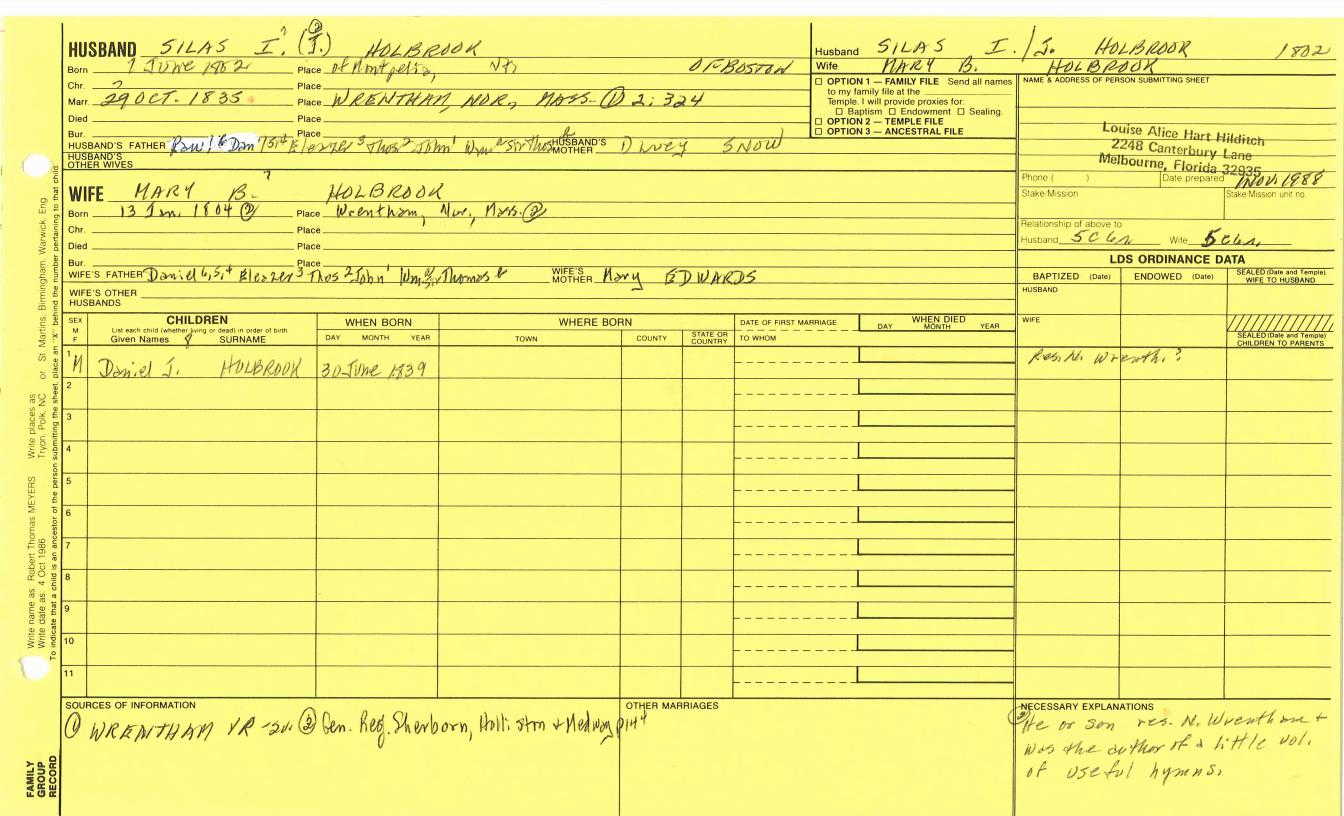 HUSBAND SILAS I.? (② J.) HOLBROOK
Born 7 June 1802 Place of Montpelia, Vt, OF BOSTON
Chr. ? Place
Marr. 29 OCT. 1835 Place WRENTHAM, NOR, MASS. ① 2:324
Died Place
Bur. Place
HUSBAND'S FATHER Dan'l 5,4 Eleazer 3 Thos 2 John 1 Wm a Sir Thos b HUSBAND'S MOTHER SNOW
HUSBAND'S OTHER WIVES
Husband SILAS I./J. HOLBROOK 1802
Wife MARY B. HOLBROOK
☐ OPTION 1 — FAMILY FILE Send all names
to my family file at the
Temple. I will provide proxies for:
☐ Baptism ☐ Endowment ☐ Sealing.
☐ OPTION 2 — TEMPLE FILE
☐ OPTION 3 — ANCESTRAL FILE
NAME & ADDRESS OF PERSON SUBMITTING SHEET
Louise Alice Hart Hilditch
2248 Canterbury Lane
Melbourne, Florida 32935
Phone ( ) Date prepared 1 Nov. 1988
Stake-Mission Stake-Mission unit no.
Relationship of above to
Husband 5C6r Wife 5C6r
WIFE MARY B.? HOLBROOK
Born 13 Jan. 1804 ② Place Wrentham, Nor, Mass. ②
Chr. Place
Died Place
Bur. Place
WIFE'S FATHER Daniel 6,5,4 Eleazer 3 Thos 2 John 1 Wm a Sir Thomas b WIFE'S MOTHER Mary EDWARDS
WIFE'S OTHER HUSBANDS
LDS ORDINANCE DATA
BAPTIZED (Date) ENDOWED (Date) SEALED (Date and Temple) WIFE TO HUSBAND
HUSBAND
WIFE
SEALED (Date and Temple) CHILDREN TO PARENTS
SEX M F
CHILDREN
List each child (whether living or dead) in order of birth
Given Names SURNAME
WHEN BORN
DAY MONTH YEAR
WHERE BORN
TOWN COUNTY STATE OR COUNTRY
DATE OF FIRST MARRIAGE
TO WHOM
WHEN DIED
DAY MONTH YEAR
1 M Daniel J. HOLBROOK 30 June 1839 Res. N. Wrenth.?
2
3
4
5
6
7
8
9
10
11
SOURCES OF INFORMATION
① WRENTHAM VR - 2v. ② Gen. Reg. Sherborn, Holliston & Medway p144
OTHER MARRIAGES
NECESSARY EXPLANATIONS
② He or son res. N. Wrentham &
was the author of a little vol.
of useful hymns.
Write name as Robert Thomas MEYERS Write places as Tryon, Polk, NC or St. Martins, Birmingham, Warwick, Eng.
Write date as 4 Oct 1986
To indicate that a child is an ancestor of the person submitting the sheet, place an "X" behind the number pertaining to that child.
FAMILY
GROUP
RECORD